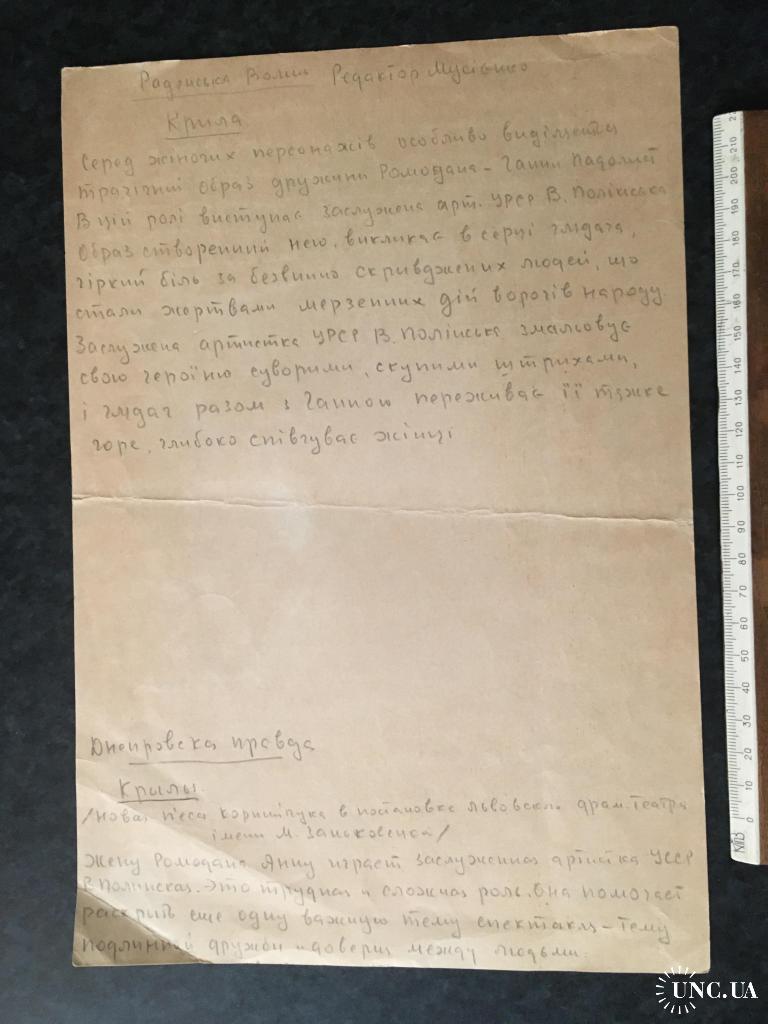 Радянська Волинь Редактор Мусієнко
Крила
Серед жіночих персонажів особливо виділяється
трагічний образ дружини Ромодана - Ганни Падолист
В цій ролі виступає заслужена арт. УРСР В. Полінська
Образ створенний нею, викликає в серці глядача,
гіркий біль за безвинно скривджених людей, що
стали жертвами мерзенних дій ворогів народу.
Заслужена артистка УРСР В. Полінська змальовує
свою героїню суворими, скупими штрихами,
і глядач разом з Ганною переживає її тяжке
горе, глибоко співчуває жінці
Днепровска правда
Крылы
/Новая п'еса Корнийчука в постановке Львовского драм. театра
імени М. Заньковецкой/
Жену Ромодана Анну играет заслуженная артистка УССР
В. Полинская. Это трудная и сложная роль. Она помогает
раскрить еще одну важную тему спектакля - тему
подлинной дружби и доверия между людьми.
210
200
190
180
170
160
150
140
130
120
110
100
90
80
70
60
50
40
30
20
10
0
UNC.UA